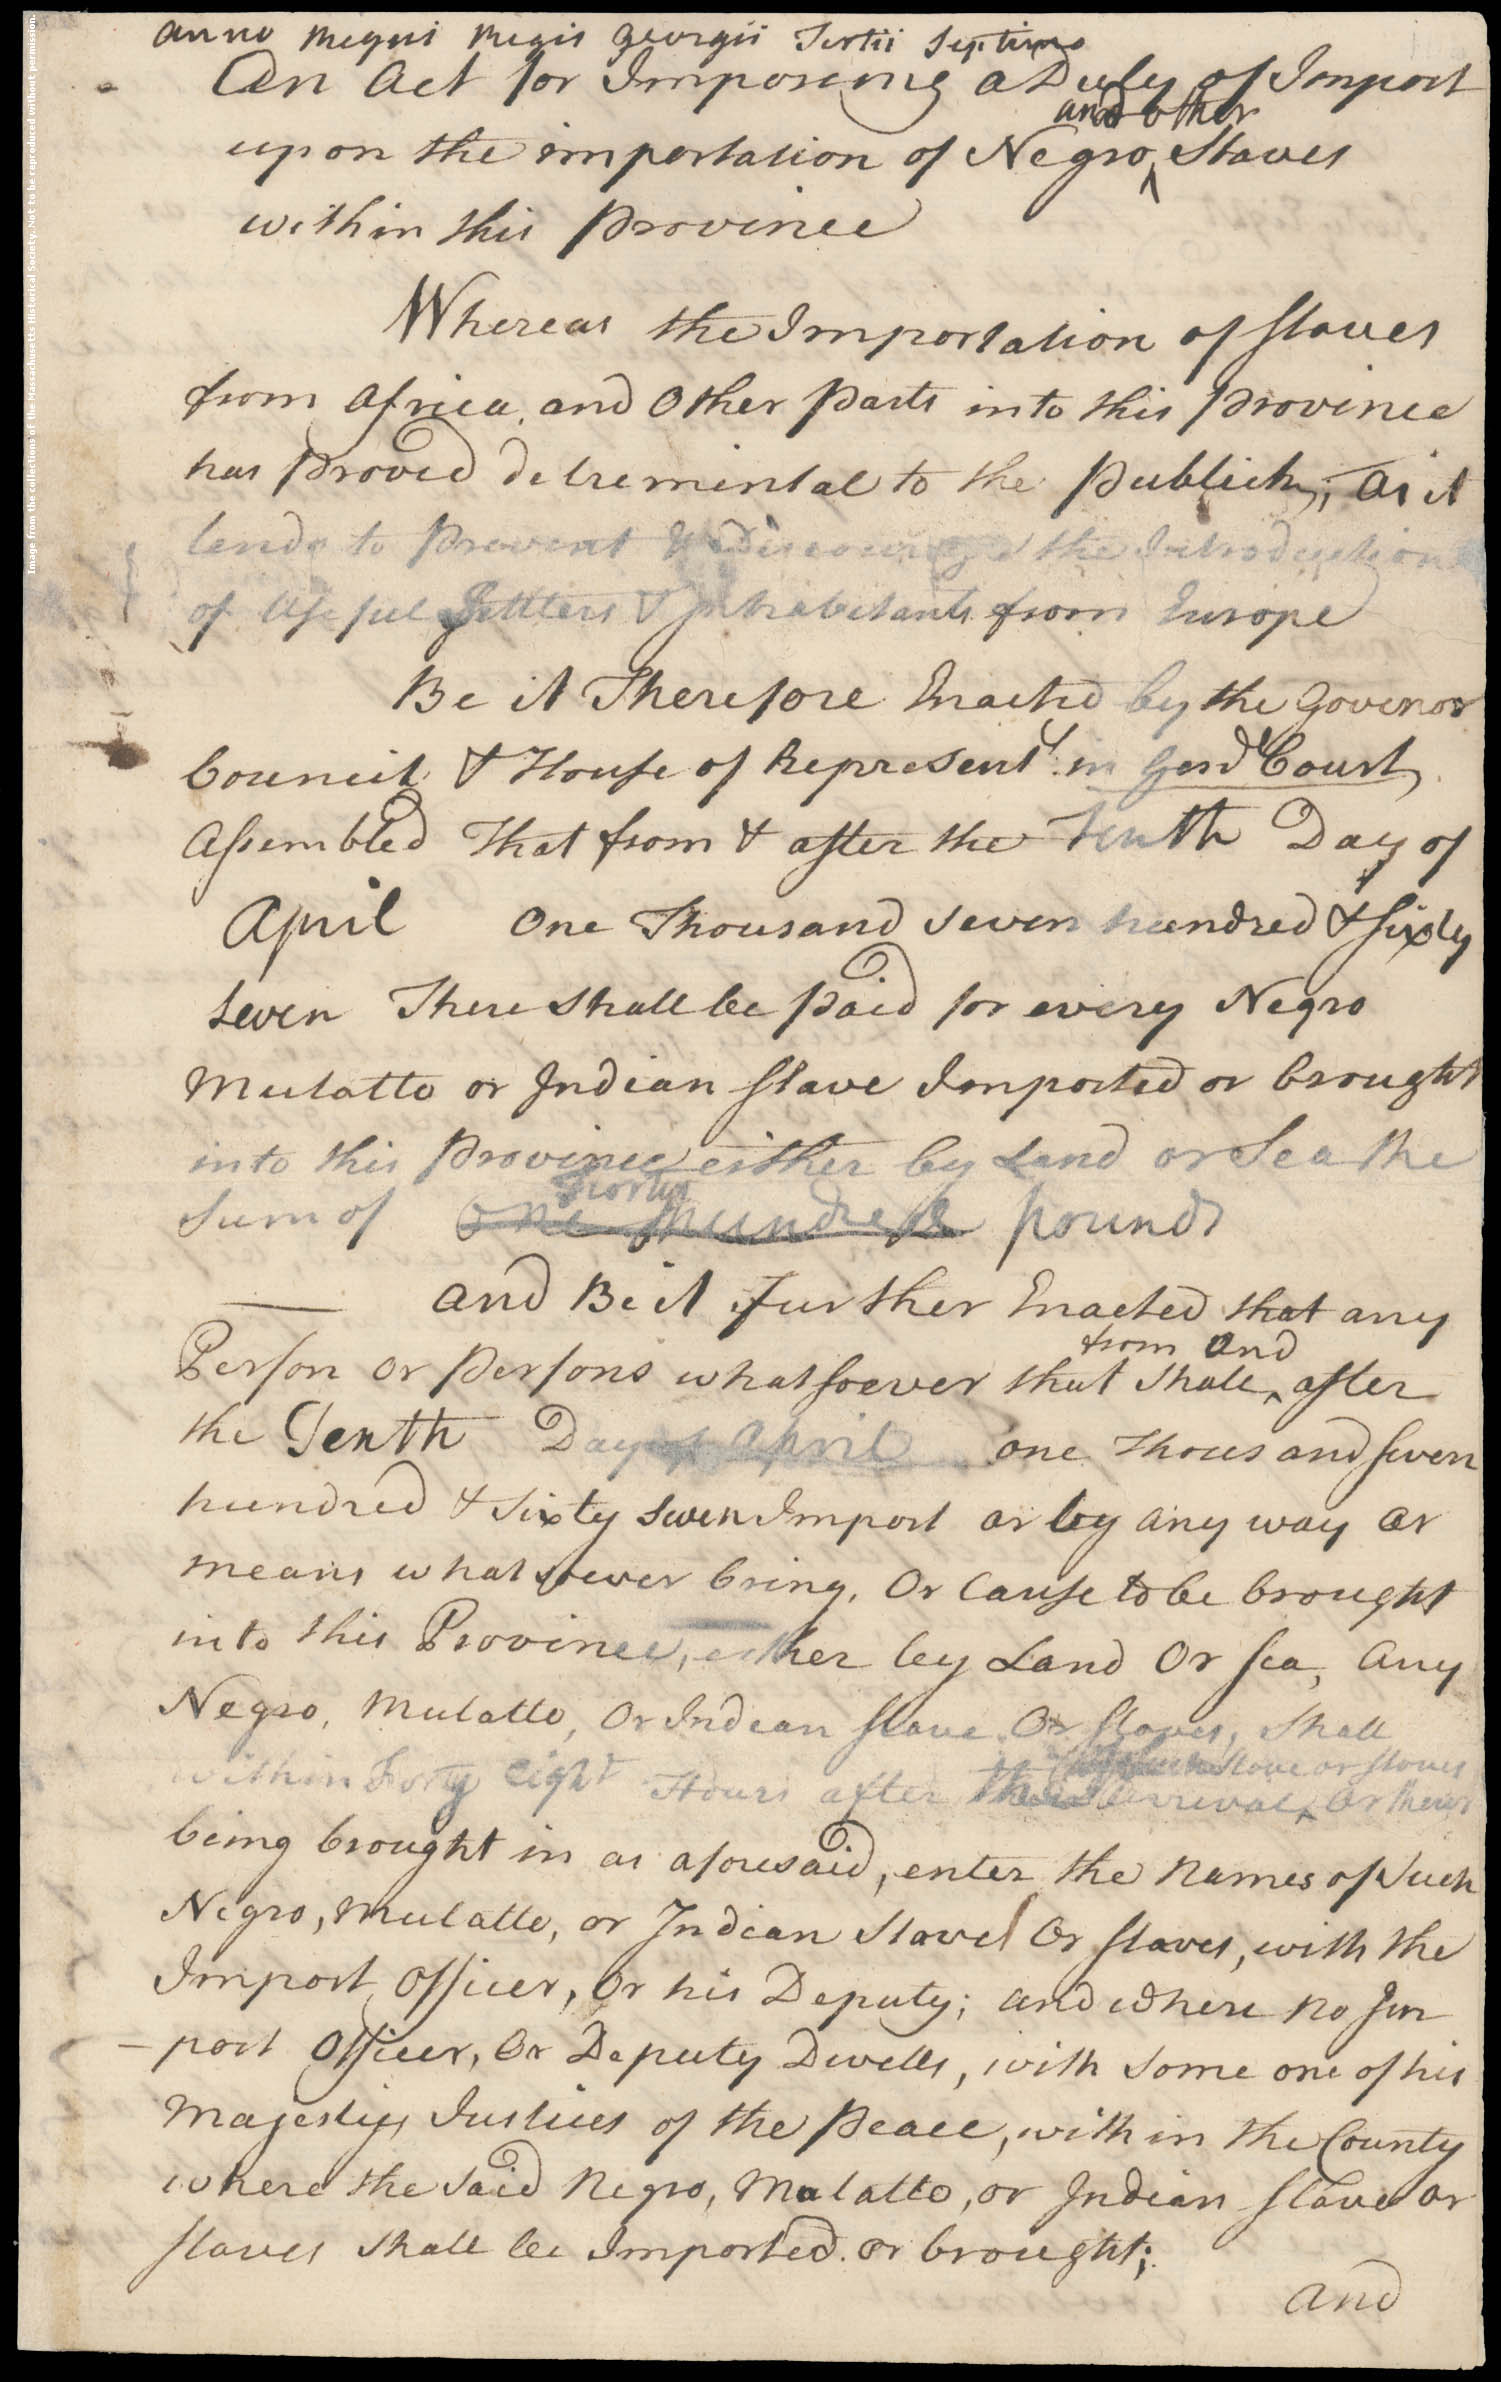 Image from the collections of the Massachusetts Historical Society. Not to be reproduced without permission.
Anno Regni Regis Georgii Tertii Septimo
An Act for Imposeing a Duty of Impost
and other
upon the importation of Negro ^ Slaves
within this Province
Whereas the Importation of slaves
from Africa, and Other Parts into this Province
has Proved detremental to the Publick, as it
tends to Prevent & Discourage the Introduction
of Useful Settlers & Inhabitants from Europe
Be it Therefore Enacted by the Govenor
Council & House of Represent.s in Genl Court
Assembled That from & after the Tenth Day of
April One Thousand Seven hundred & Sixty
Seven There shall be Paid for every Negro
Mulatto or Indian slave Imported or brought
into this Province either by Land or Sea the
Forty
Sum of one hundred pounds
And Be it Further Enacted that any
from and
Person or Persons whatsoever that shall ^ after
the Tenth Day of April one thousand seven
hundred & sixty seven Import or by any way or
means whatsoever bring, Or Cause to be brought
into this Province, either by Land Or sea, any
Negro, Mulatto, Or Indian slave Or slaves, shall
such slave or slaves
within Forty eight Hours after Arrival, ^ Or their
being brought in as aforesaid, enter the Names of Such
Negro, Mulatto, or Indian Slave Or slaves, with the
Impost Officer, Or his Deputy; and where no Im
-post Officer, Or Deputy Dwells, with Some one of his
Majestys Justices of the Peace, within the County
where the Said Negro, Mulatto, or Indian slave or
slaves shall be Imported or brought;
and